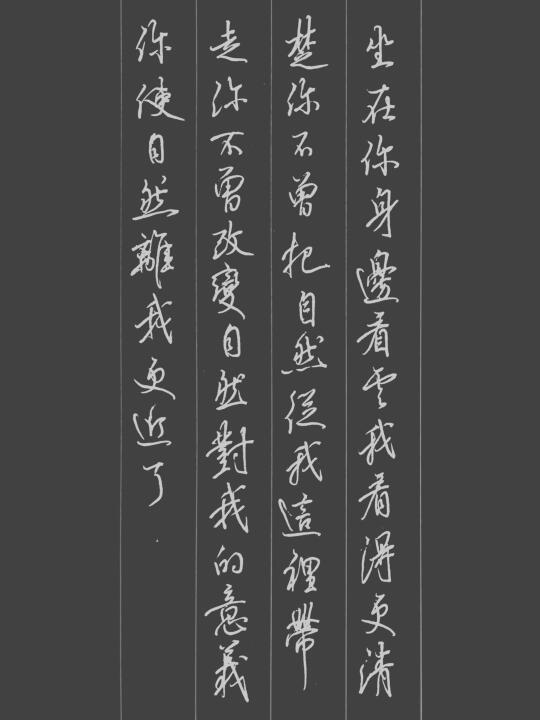 坐在你身邊看雲我看得更清
楚你不曾把自然從我這裡帶
走你不曾改變自然對我的意義
你使自然離我更近了